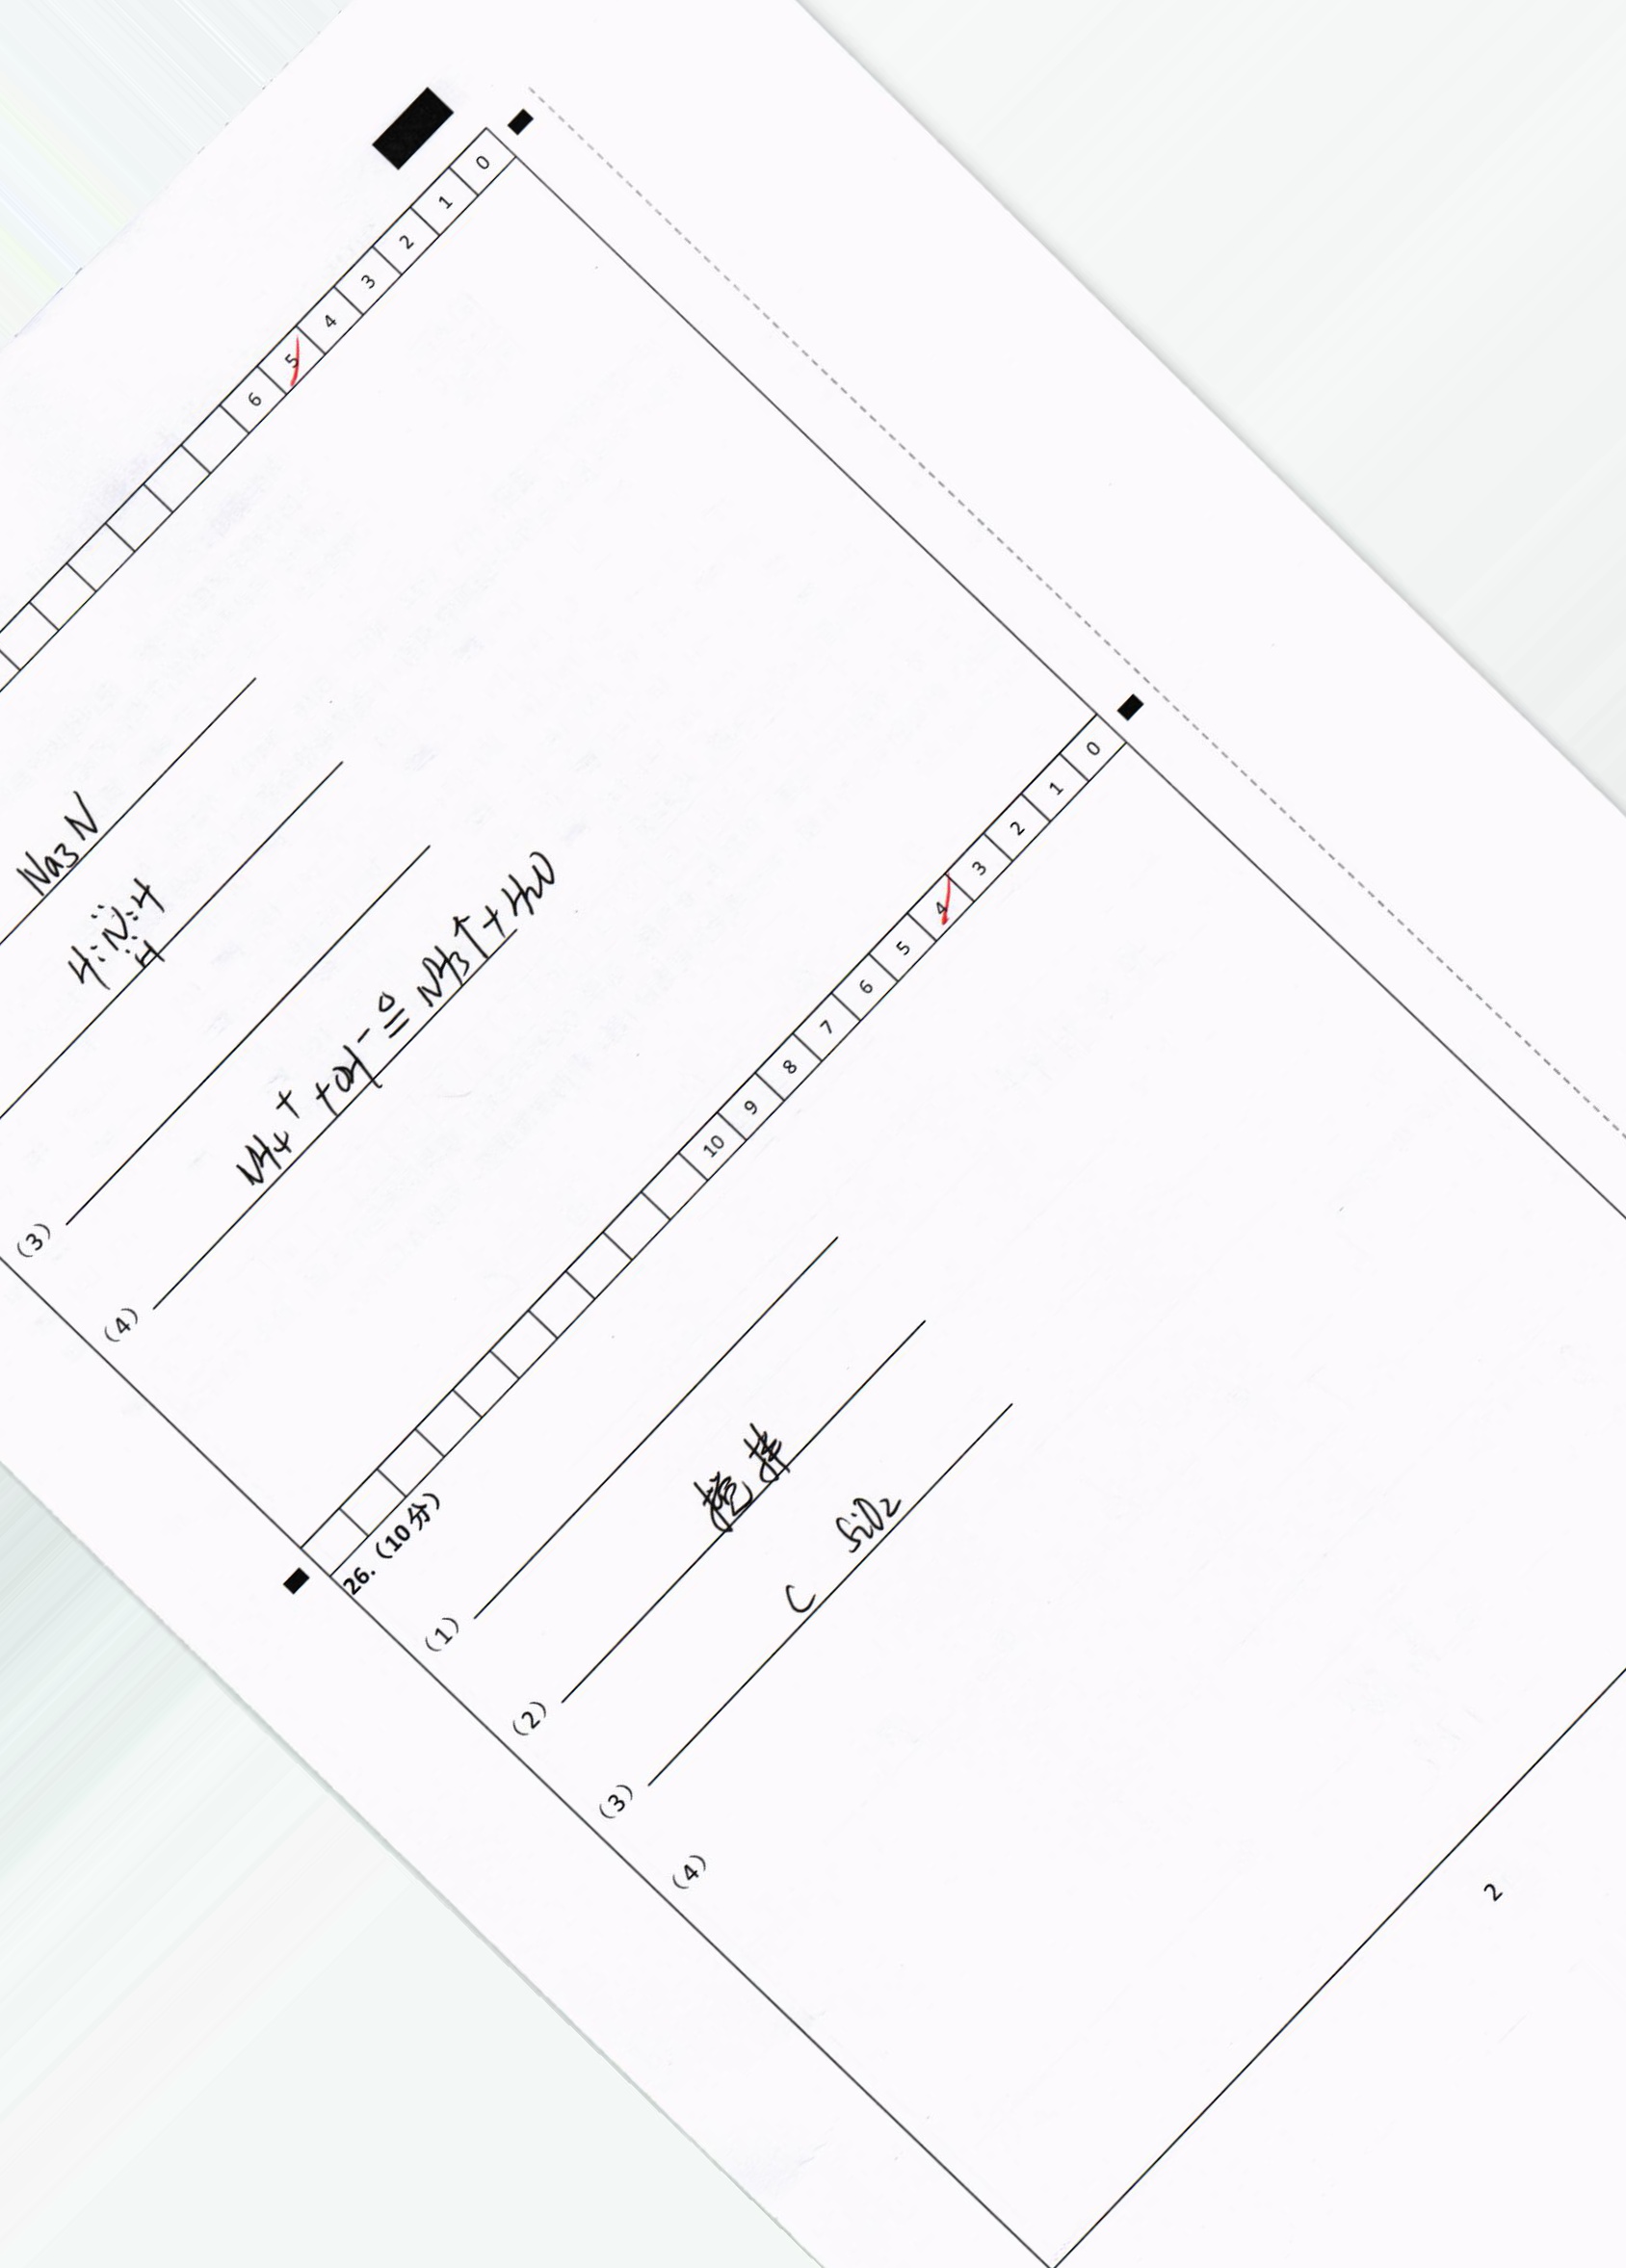 6 5 4 3 2 1 0
Na3N
H:N:H
H
(3)
(4) NH4+ +OH- ≜ NH3↑+H2O
10 9 8 7 6 5 4 3 2 1 0
26.(10分)
(1)
(2) 搅拌
(3) C SiO2
(4)
2